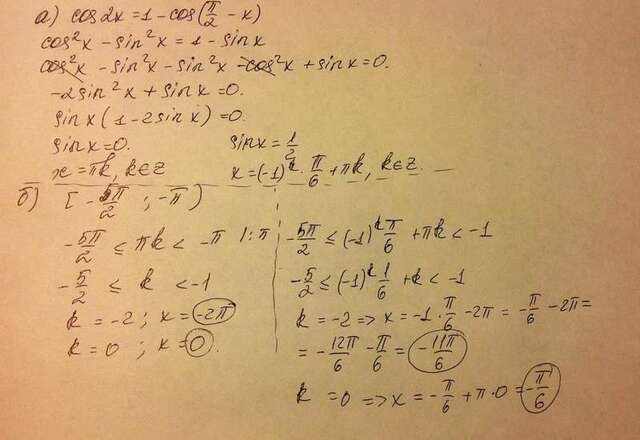 а) cos2x = 1 - cos(π/2 - x)
cos²x - sin²x = 1 - sinx
cos²x - sin²x - sin²x - cos²x + sinx = 0.
-2sin²x + sinx = 0.
sinx(1 - 2sinx) = 0.
sinx = 0. sinx = 1/2
x = πk, k∈z x = (-1)^k · π/6 + πk, k∈z.
б) [-5π/2 ; -π)
-5π/2 ≤ πk < -π |:π
-5/2 ≤ k < -1
k = -2; x = -2π
k = 0; x = 0
-5π/2 ≤ (-1)^k π/6 + πk < -1
-5/2 ≤ (-1)^k 1/6 + k < -1
k = -2 => x = -1·π/6 - 2π = -π/6 - 2π =
= -12π/6 - π/6 = -11π/6
k = 0 => x = -π/6 + π·0 = -π/6